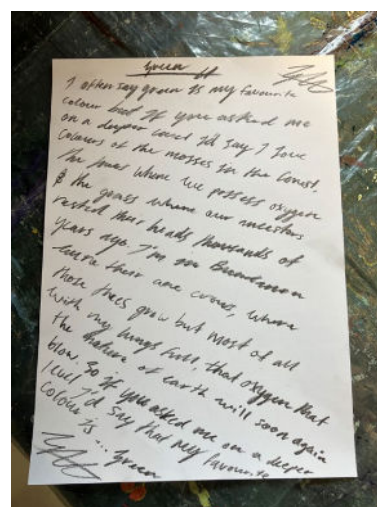 Green
I often say green is my favourite
colour but if you asked me
on a deeper level I'd say I love
Colours of the mosses in the forest,
The trees where we possess oxygen
& the grass where our ancestors
rested their heads thousands of
years ago. I'm on Bundanon
where their are cows, where
those trees grow but most of all
with my lungs full, that oxygen that
the nature of earth will soon again
blow. So if you asked me on a deeper
level I'd say that my favourite
colour is ... green